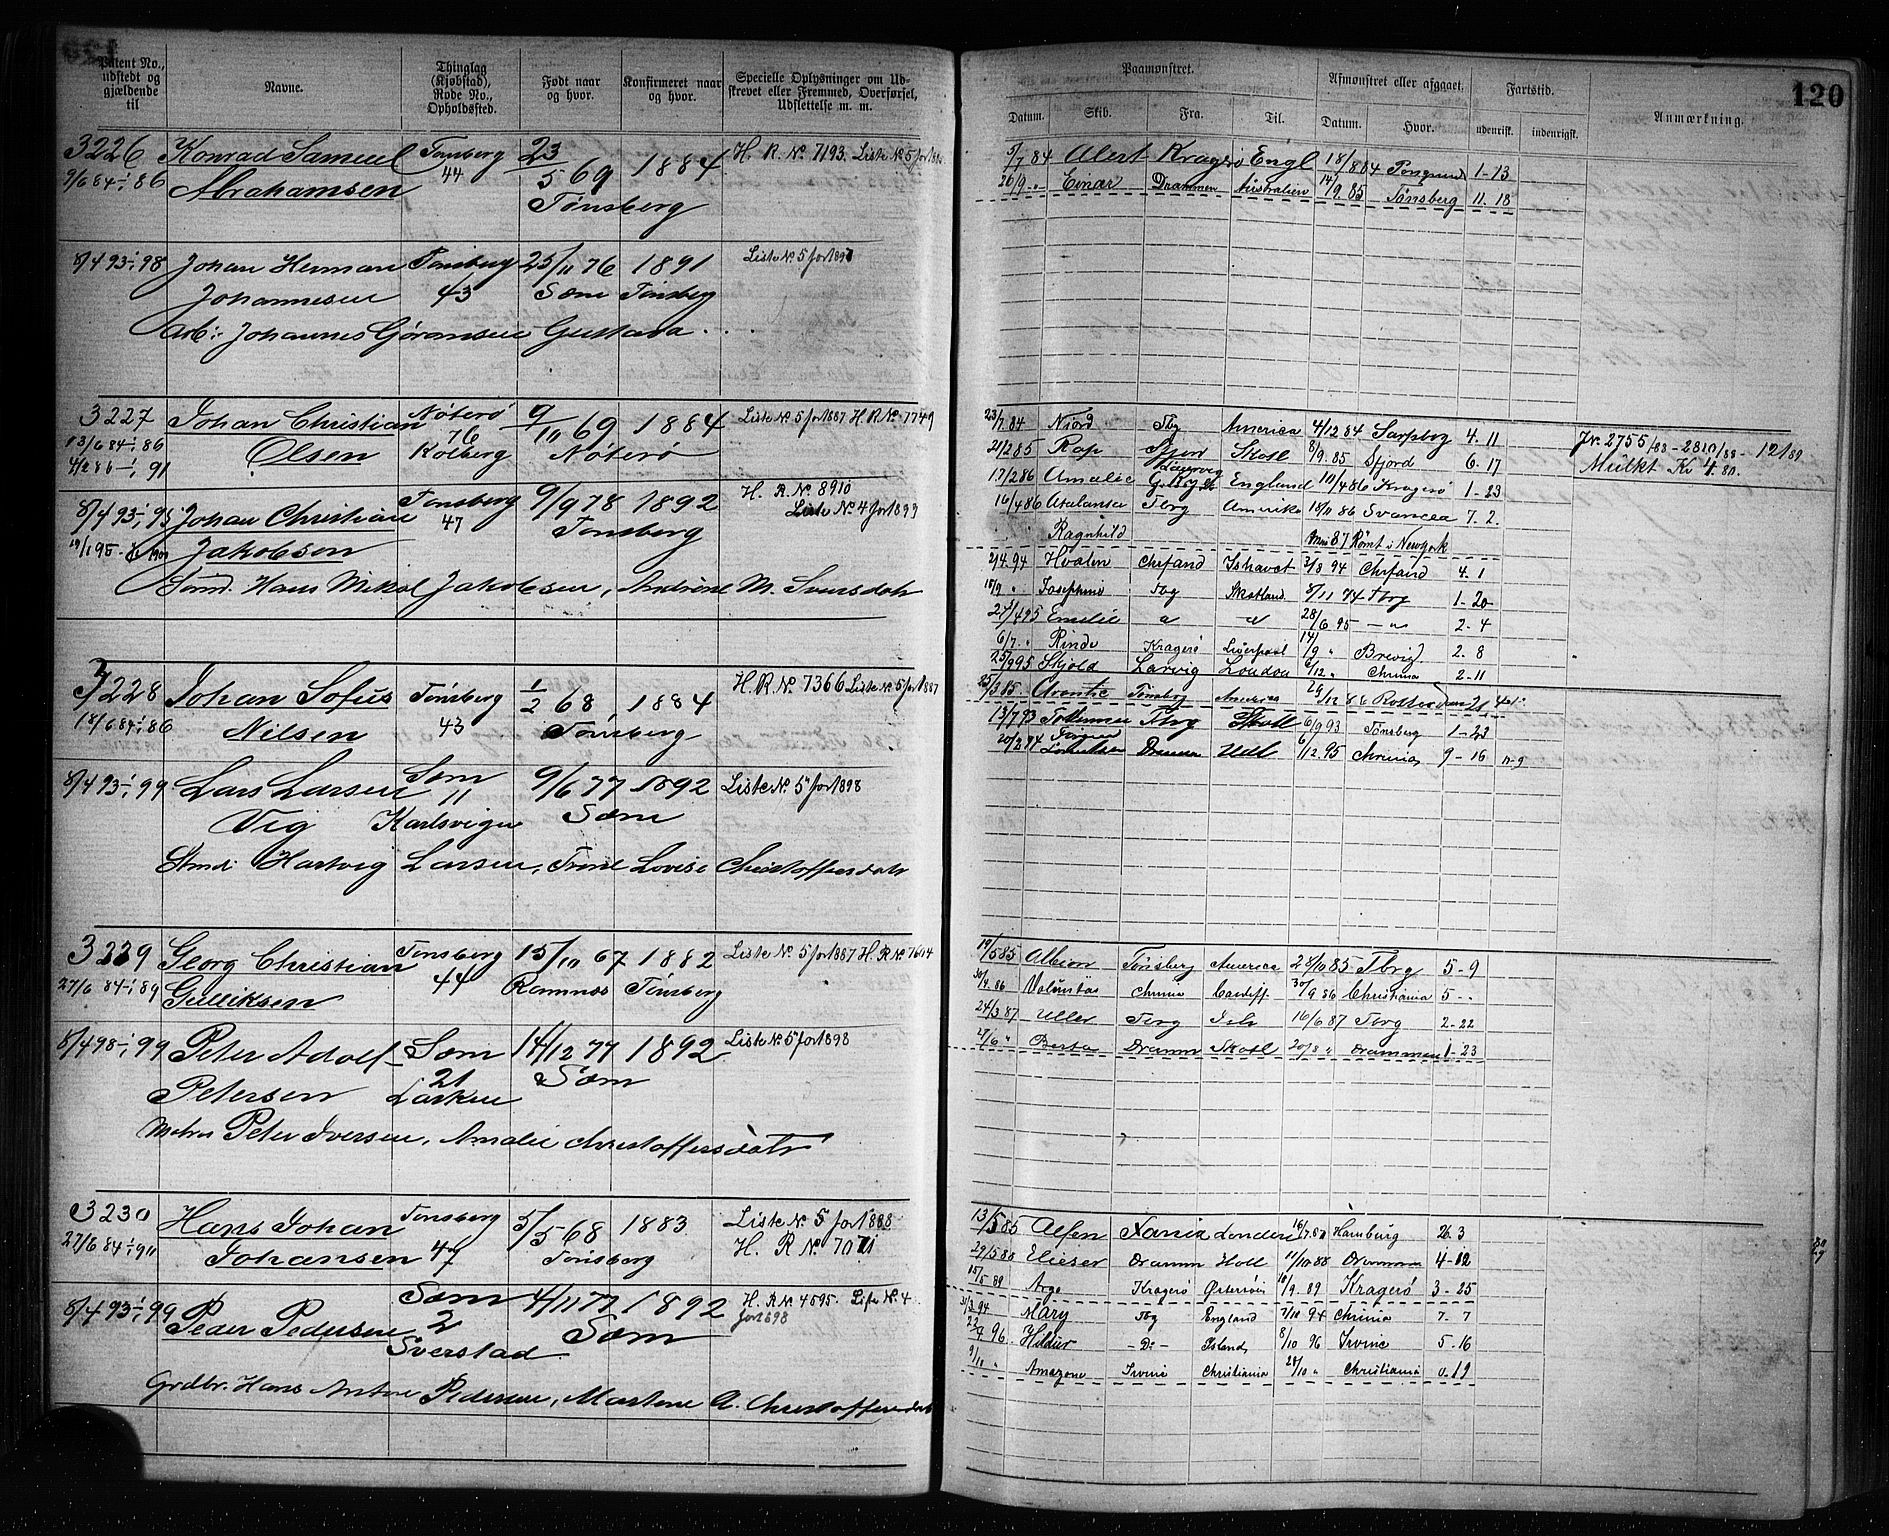 120
Patent No., udstedt og gjældende til
Navne.
Thinglag (Kjøbstad), Rode No., Opholdssted.
Født naar og hvor.
Konfirmeret naar og hvor.
Specielle Oplysninger om Udskrevet eller Fremmed, Overførsel, Udslettelse m. m.
Paamønstret.
Afmønstret eller afgaaet.
Fartstid.
Anmærkning.
Datum. Skib. Fra. Til. Datum. Hvor. udenrisk. indenrigsk.
3226 Konrad Samuel Tønsberg 23/5 69 1884 H. R. No 7193. Liste No 5 for
9/6 84-1/1 86 Abrahamsen 44 Tønsberg
8/4 93-1/1 98 Johan Herman Tønsberg 25/11 76 1891 Liste No 5 for 1897
Johannesen 43 Sæm Tønsberg
Arb: Johannes Gøransen Gustava
3227 Johan Christian Nøterø 9/10 69 1884 Liste No 5 for 1887 H. R. No 7749
13/6 84-1/1 86 Olsen 76 Kolberg Nøterø
4/2 86-1/1 91
8/4 93-1/1 95 Johan Christian Tønsberg 9/9 78 1892 H. R. No 8910
Jakobsen 47 Tønsberg Liste No 4 for 1899
Smd. Hans Mikal Jakobsen, Andrine M. Svensdatr
3228 Johan Sofus Tønsberg 1/2 68 1884 H. R. No 7366 Liste No 5 for 1887
18/6 84-1/1 86 Nilsen 43 Tønsberg
8/4 93-1/1 99 Lars Larsen Sæm 9/6 77 1892 Liste No 5 for 1898
Vig 11 Karlsvigen Sæm
Stmd: Hartvig Larsen, Trine Lovise Christoffersdatr
3229 Georg Christian Tønsberg 15/10 67 1882 Liste No 5 for 1887 H. R. No 7604
27/6 84-1/1 89 Gulliksen 44 Ramnæs Tønsberg
8/4 98-1/1 99 Peter Adolf Sæm 14/12 77 1892 Liste No 5 for 1898
Petersen 21 Sæm
Peter Iversen, Amalie Christoffersdatr
3230 Hans Johan Tønsberg 5/5 68 1883 Liste No 5 for 1888
27/6 84-1/1 90 Johansen 47 Tønsberg H. R. No 7071
8/4 93-1/1 99 Peder Pedersen Sæm 4/11 77 1892 H. R. No 4595. Liste No 4
2 Sverstad Sæm for 1898
Grdbr. Hans Anton Pedersen, Martene A. Christoffersdatr
5/7 84 Alert Kragerø Engl 18/8 84 1-13
26/9 " Einar Drammen Australien 14/9 85 Tønsberg 11-18
23/7 84 Njord Tbg America 4/12 84 Sarpbg 4-11
Jr. 2755/88 - 2810/88 - 121/89
21/2 85 Rap Sfjord Skotl 8/9 85 Sfjord 6-17
Mulkt Kr 4 80.
17/2 86 Amalie England 10/4 86 Kragerø 1-23
16/4 86 Atalanta Tbrg Amerika 18/11 86 Svansea 7-2
Ragnhild 87 Rømt i Newyork
2/4 94 Hvalen Chrsand Ishavet 3/8 94 Chrsand 4-1
18/9 " Josephine Tbg Skotland 8/11 94 Tbrg 1-20
27/4 95 Emilie " " 28/6 95 - " 2-4
6/7 " Rinde Kragerø Liverpool 14/9 " Brevig 2-8
25/9 95 Skjold Larvig London 6/12 " Chrnia 2-11
25/3 85 Tønsbg America 24/12 86 Rotterdam
13/7 93 Tbrg Skotl 6/9 93 Tønsberg 1-23
20/2 94 Dramm Udl 6/12 95 Chrnia 9-16
19/5 85 Albion Tønsberg America 28/10 85 Tbrg 5-9
30/4 86 Valuntas Chrnia Cardiff 30/9 86 Christiania 5--
24/3 87 Uller Tbrg Ish 16/6 87 Tbrg 2-22
27/6 " Berta Dramm Skotl 20/8 " Drammen 1-23
13/5 85 Alfen London Hamburg 26-3
29/5 88 Elieser Dramm Holl 11/10 88 Drammen 4-12
15/5 89 Argo Kragerø Østersøen 10/9 89 Kragerø 3-25
31/3 94 Mary Tbg England 7/10 94 Chrnia 7-7
96 Hildur -Do- Island 8/10 96 Irvine 5-16
9/10 " Amazone Irvine Christiania 28/10 " Christiania 0-19